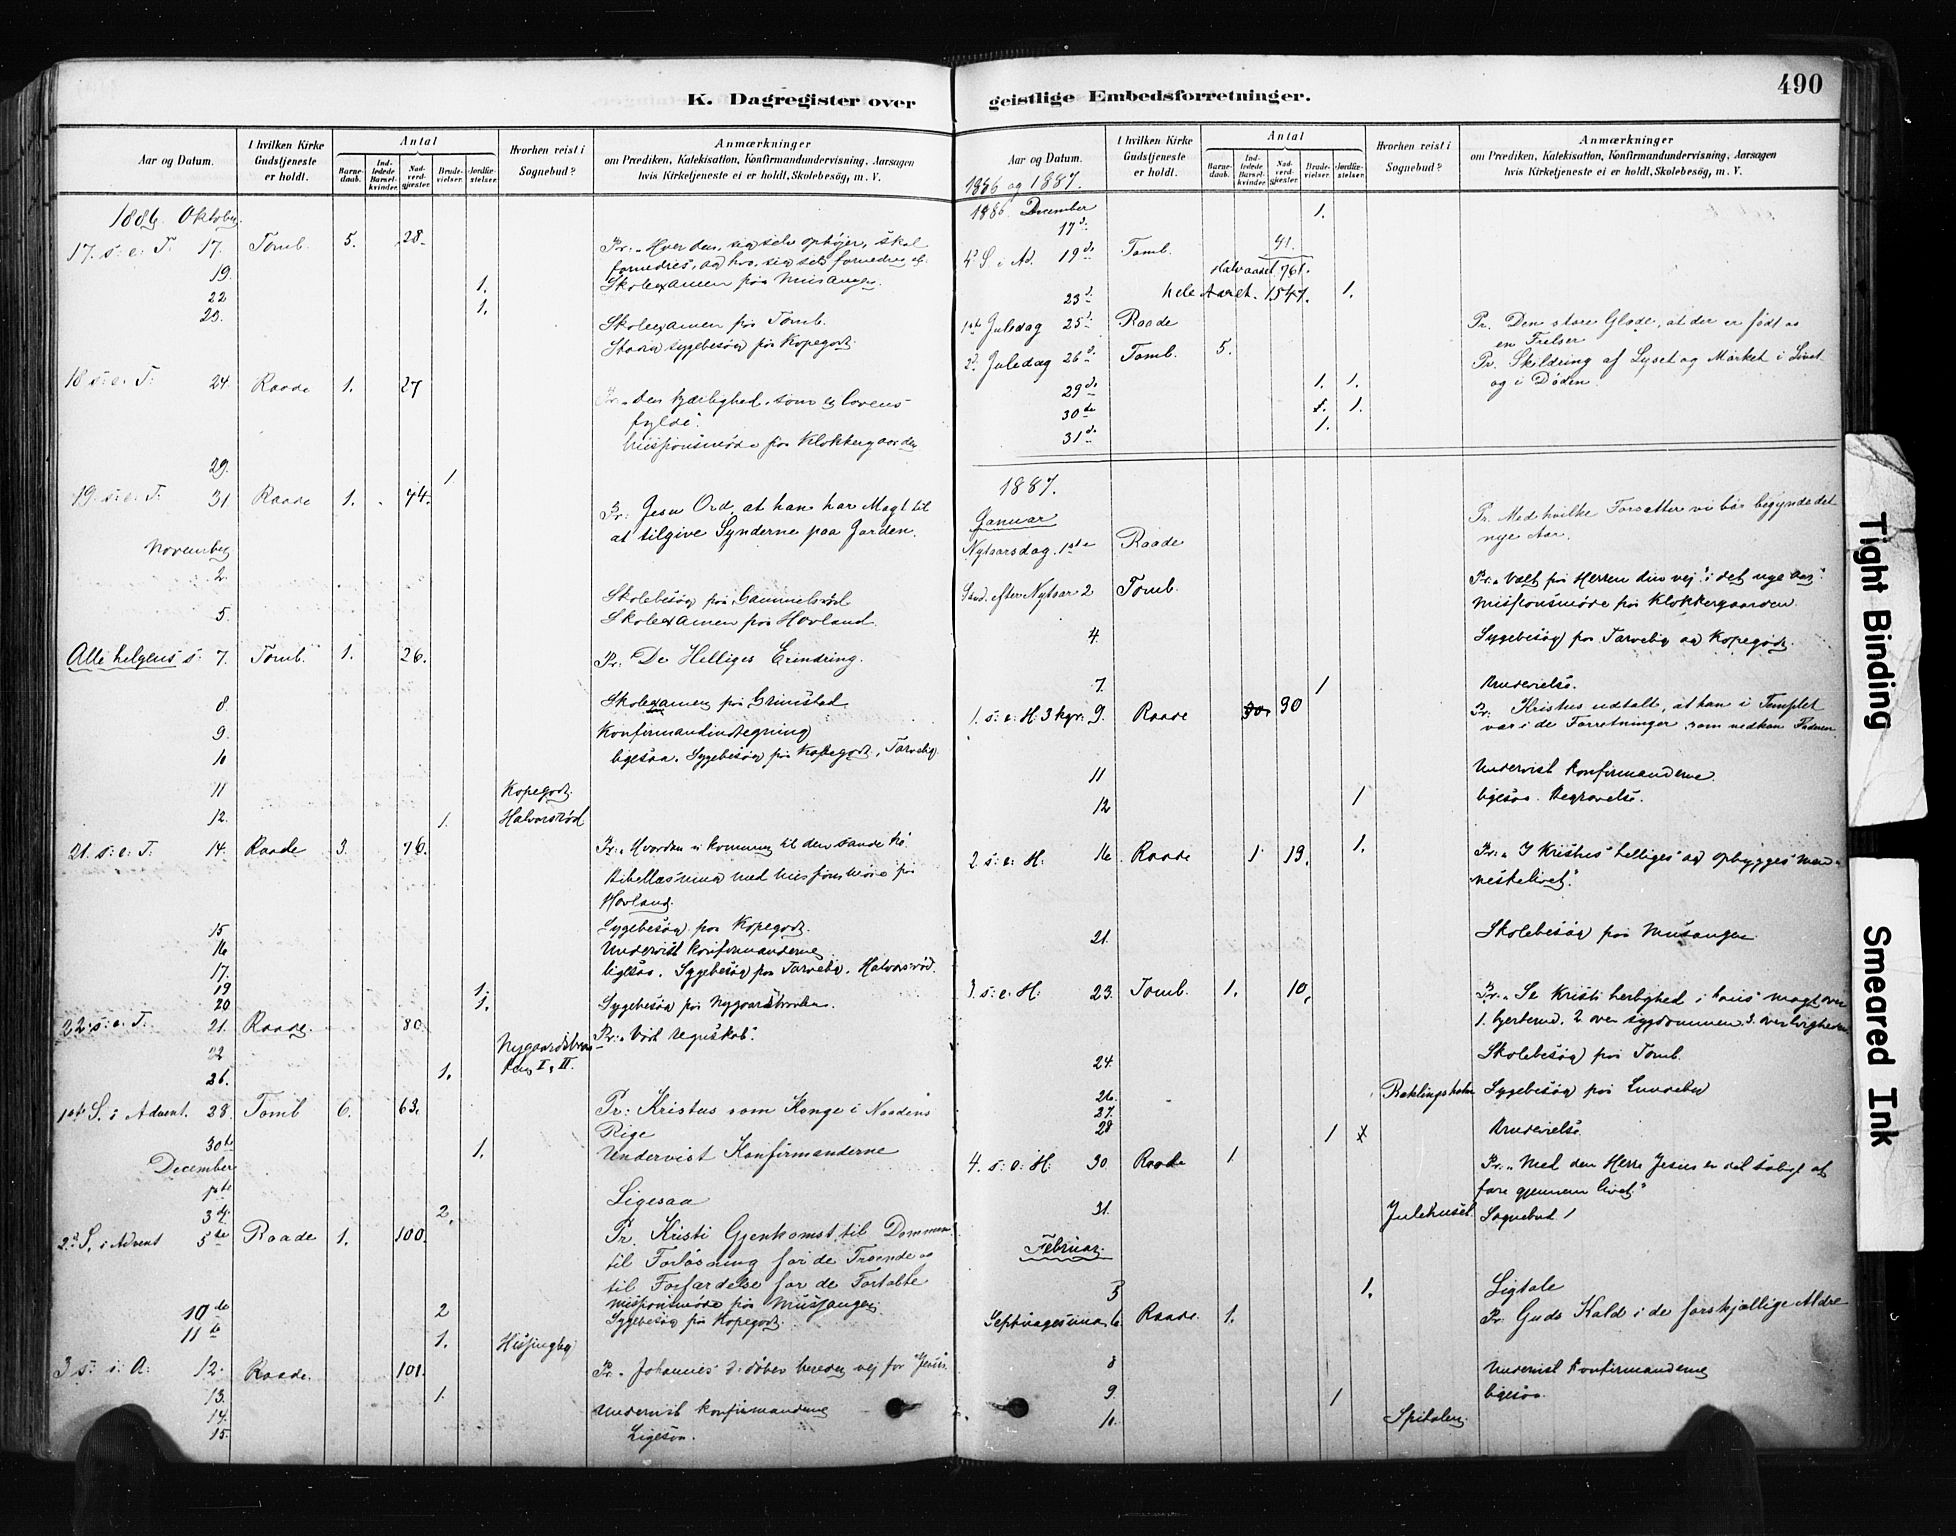 K. Dagregister over
Aar og Datum.
I hvilken Kirke Gudstjeneste er holdt.
Antal
Barnedaab.
Indledede Barselkvinder.
Nadverdgjester.
Brudevielser.
Jordfæstelser.
Hvorhen reist i Sognebud?
Anmærkninger
om Prædiken, Katekisation, Konfirmandundervisning, Aarsagen
hvis Kirketjeneste ei er holdt, Skolebesög, m. V.
1886 Oktober
17. s. e. T. 17. Tomb. 5. 28. Pr. "Hver den, sig selv ophöjer, skal
fornedres", og hvo, sig selv fornedrer
19. 1. Skolexamen paa Musangen.
22 1.
23. Skolexamen paa Tomb.
Sygebesög paa Kopegodt.
18 s. e. T. 24. Raade 1. 27 Pr. "Den Kjærlighed, som er lovens
fylde".
Missionsmöde paa Klokkergaarden
29. 1
19. s. e. T. 31 Raade 1. 74. Pr: Jesu Ord, at han har Magt til
at tilgive Synderne paa Jorden.
November
2. Skolebesög paa Gammelsröd
5. Skolexamen paa Hovland
Alle helgens s. 7. Tomb. 1. 26. Pr: De Helliges Erindring.
8 Skolexamen paa Grimstad
9. Konfirmandindtegning
10 ligesaa. Sygebesög paa Kopegodt, Tarveby
11 Kopegodt.
12. 1. Halvorsröd
21. s. e. T. 14. Raade 3. 76. Pr. "Hvordan vi kommer til den sande
Bibellæsning med missionsmöde paa
Hovland.
15 Sygebesög paa Kopegodt.
16 Undervist konfirmanderne
17. ligesaa. Sygebesög paa Tarveby. Halvorsröd.
19 1.
20 1. Sygebesög paa Nygaardsbraaten.
22. s. e. T. 21. Raade. 80. Pr: "Vort regnskab".
22 Nygaardsbraaten I, II.
26. 1.
1ste S. i Advent. 28. Tomb 6. 63. Pr: Kristus som Konge i Naadens
Rige
30te 1. Undervist Konfirmanderne
December
1ste Ligesaa
3 4. 2.
2d. S. i Advent 5te Raade 1. 100. Pr. Kristi Gjenkomst til Dommen
til Forlösning for de Troende og
til Forfærdelse for de Fortabte
10de 2 missionsmöde paa Musangen.
Sygebesög paa Kopegodt.
11te 1. Hissingby
3 s. i. A. 12. Raade. 101. Pr. "Johannes d. döber bereder vej for Jesus.
13. 1.
14. Undervist konfirmanderne
15. Ligesaa.
490
geistlige Embedsforretninger.
Aar og Datum.
I hvilken Kirke Gudstjeneste er holdt.
Antal
Barnedaab.
Indledede Barselkvinder.
Nadverdgjester.
Brudevielser.
Jordfæstelser.
Hvorhen reist i Sognebud?
Anmærkninger
om Prædiken, Katekisation, Konfirmandundervisning, Aarsagen
hvis Kirketjeneste ei er holdt, Skolebesög, m. V.
1886 og 1887.
1886 December
17d. 1.
4d. S. i Ad. 19de Tomb. 41.
Halvaaret 761.
23d. Hele Aaret. 1547. 1.
1ste Juledag 25d. Raade Pr. Den store Glæde, at der er födt os
en Frelser
2d. Juledag 26d. Tomb. 5. Pr. Skildring af Lyset og Mörket i Livet
og i Döden.
29de 1. 1.
30te 1. 1.
31d. 1.
1887.
Januar
Nytaarsdag. 1ste Raade Pr. Med hvilke Forsætter vi bör begynde det
nye Aar.
Sönd. efter Nytaar 2 Tomb. Pr. "Vælt paa Herren din vej" i det nye aar.
Missionsmöde paa Klokkergaarden.
4. Sygebesög paa Tarveby og Kopegodt.
7. 1 Brudevielse.
1. s. e. H. 3 kgr. 9. Raade 90 Pr. Kristus udtalt, at han i Templet
var i de Forretninger, som vedkom Faderen.
11 Undervist konfirmanderne.
12 1 ligesaa. Begravelse.
2. s. e. H. 16 Raade 1 19. 1. Pr. "I Kristus helliges og opbygges menneskelivet."
21. Skolebesög paa Musangen
3. s. e. H. 23. Tomb. 1. 10. Pr. "Se Kristi herlighed i hans magt over
1. hjerterne. 2 over sygdommen 3.
24. Skolebesög paa Tomb.
26. Sygebesög paa Lundeby
27.
28 1 Brudevielse.
4. s. e. H. 30. Raade 1 Pr. "Med den Herre Jesus er det saligt at
fare gjennem livet."
31. Julehuset. Sognebud 1
Februar.
5 1. Ligtale
Septuagesima 6. Raade. 1. Pr. Guds Kald i de forskjellige Aldre
8 Undervist konfirmanderne
9. 1 ligesaa.
10. Spitalen.
Tight Binding
Smeared Ink